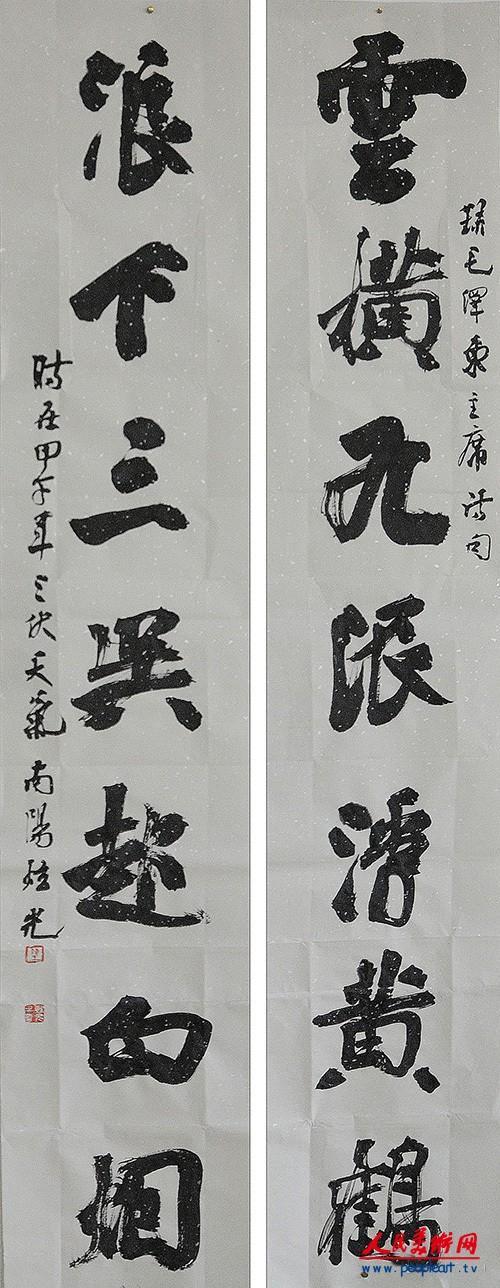 雲橫九派浮黄鶴
錄毛澤東主席诗句
浪下三吳起白烟
時在甲午年三伏天氣南陽光
人民美术网
www.peopleart.tv